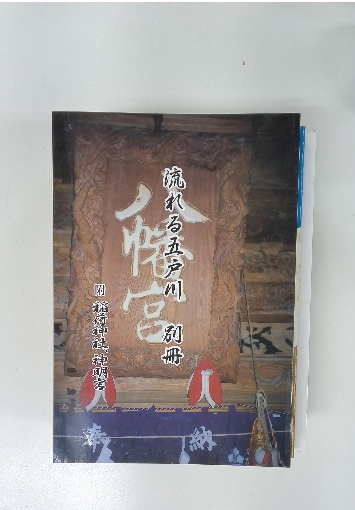 流れる五戸川 別冊
八幡宮
附 稲荷神社、神明宮
奉
納